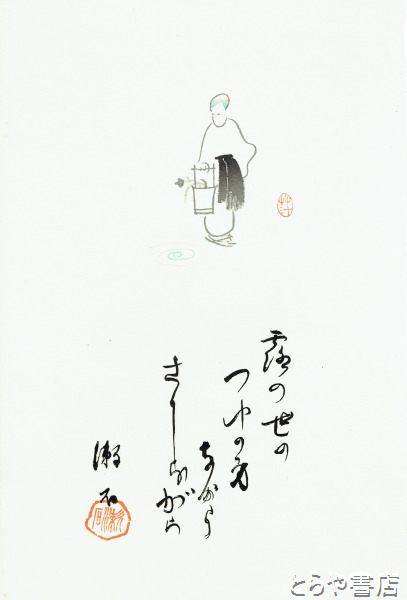 露の世の
つゆの身
ながら
さりながら
とらや書店